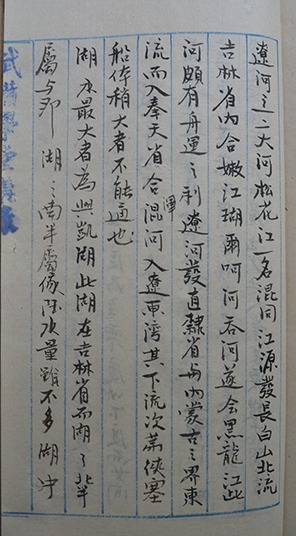 遼河之二大河松花江一名混同江源發長白山北流
吉林省內合嫩江瑚爾呵河吞河遂會黑龍江此
河頗有舟運之利遼河發直隸省与內蒙古之界東
流而入奉天省合混河入遼東灣其下流次第俠塞
渾
船体稍大者不能通也
湖水最大者為興凱湖此湖在吉林省而湖之北半
屬与 湖之南半屬 水量雖不多湖中
武備學堂